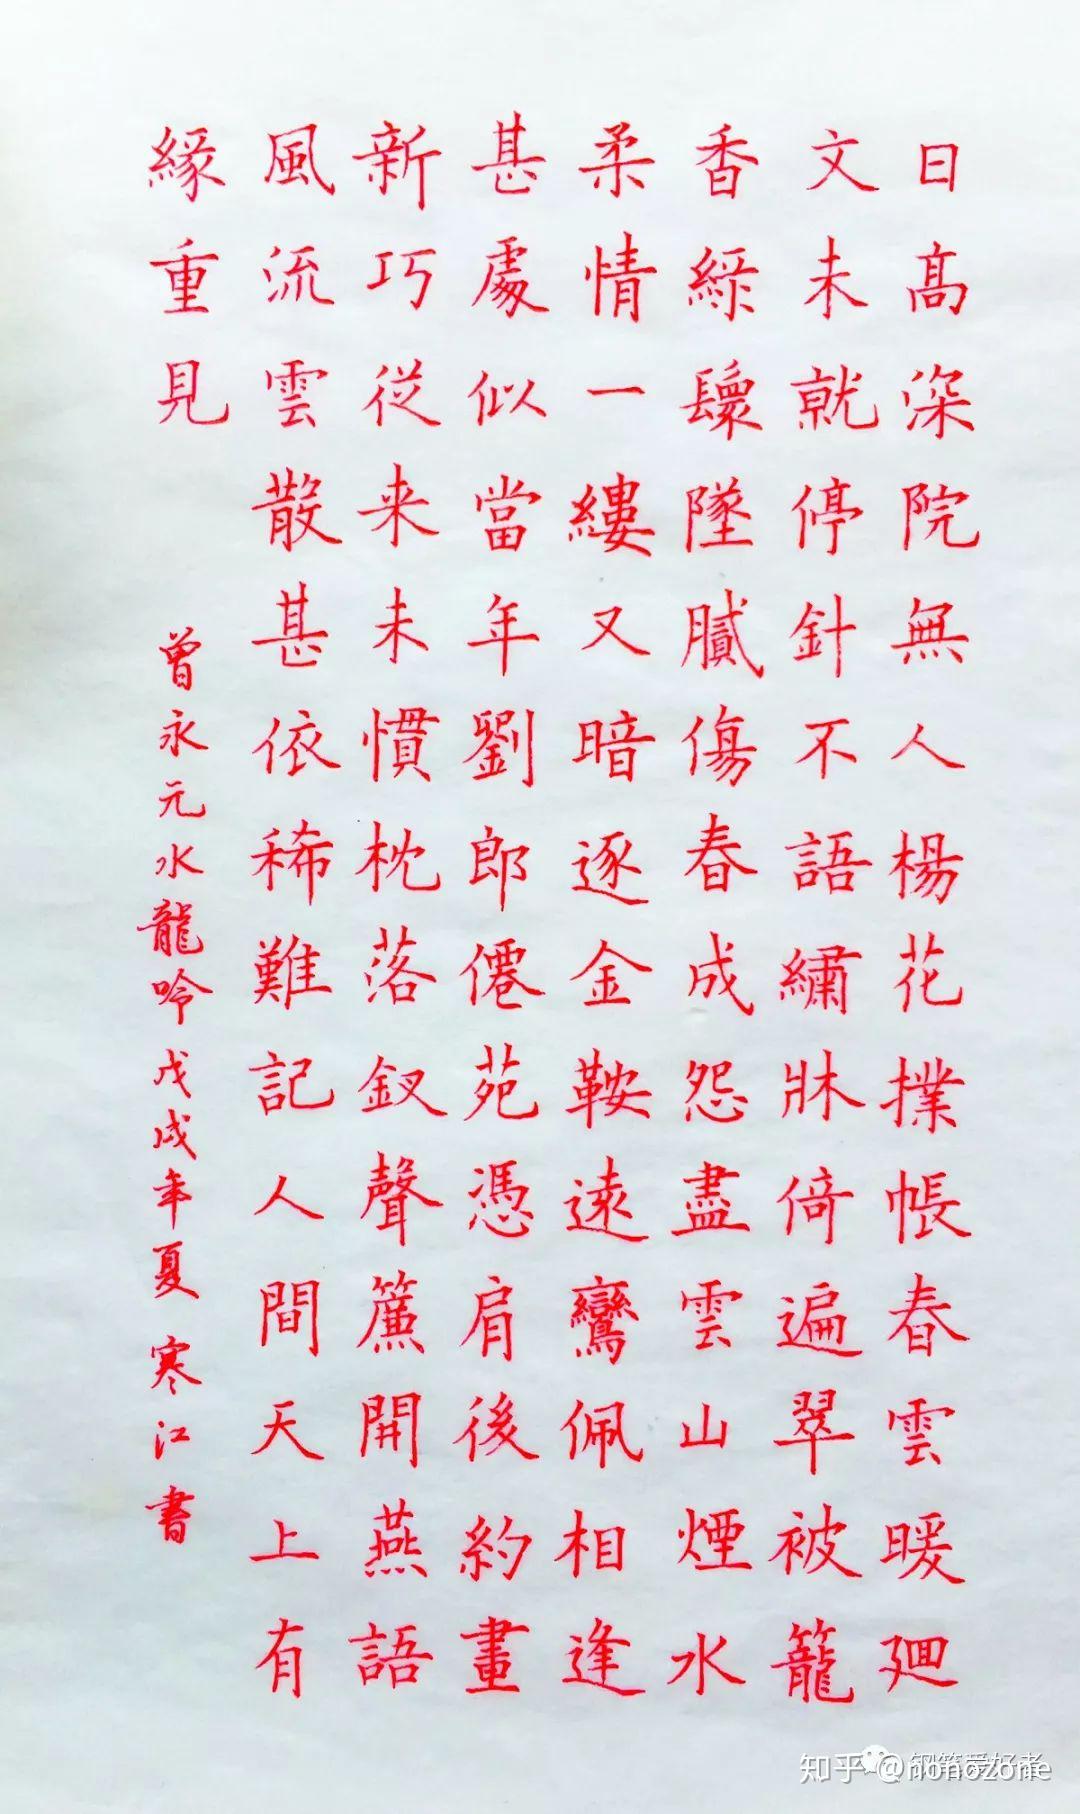 日高深院無人楊花撲帳春雲暖迴
文未就停針不語繡牀倚遍翠被籠
香綠鬟墜膩傷春成怨盡雲山煙水
柔情一縷又暗逐金鞍遠鸞佩相逢
甚處似當年劉郎僊苑憑肩後約畫
新巧從来未慣枕落釵聲簾開燕語
風流雲散甚依稀難記人間天上有
緣重見
曾永元水龍吟戊戌年夏寒江書
知乎 @nonozone